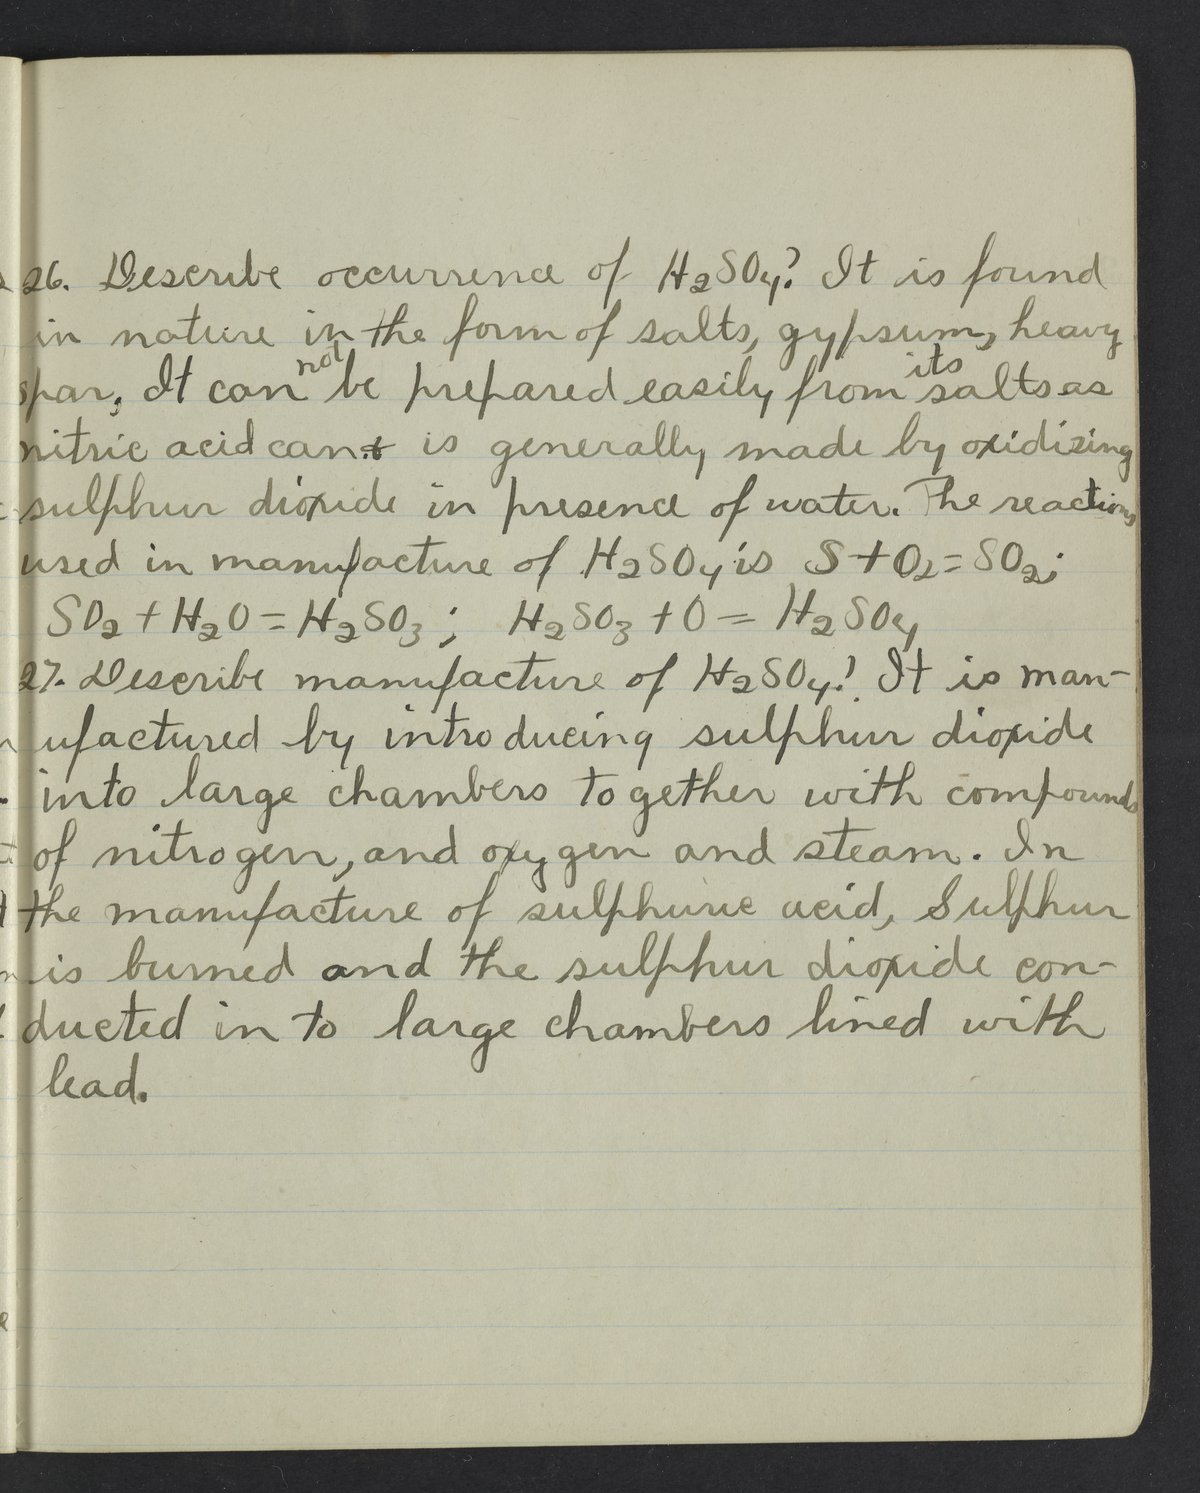 26. Describe occurrence of H₂SO₄? It is found
in nature in the form of salts, gypsum, heavy
spar, It can not be prepared easily from its salts as
nitric acid can. + is generally made by oxidizing
sulphur dioxide in presence of water. The reactions
used in manufacture of H₂SO₄ is S + O₂ = SO₂;
SO₂ + H₂O = H₂SO₃; H₂SO₃ + O = H₂SO₄
27. Describe manufacture of H₂SO₄? It is man-
ufactured by introducing sulphur dioxide
into large chambers together with compounds
of nitrogen, and oxygen and steam. In
the manufacture of sulphuric acid, Sulphur
is burned and the sulphur dioxide con-
ducted in to large chambers lined with
lead.